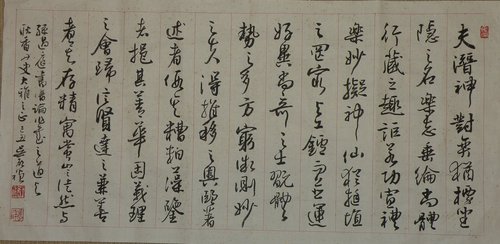 夫潛神對奕猶標坐
隱之名樂志垂綸尚體
行藏之趣詎若功宣禮
樂妙擬神仙猶埏埴
之罔窮與工鑪而並運
好異尚奇之士翫體
勢之多方窮微測妙
之夫得推移之奧賾著
述者假其糟粕藻鑒
者挹其菁華固義理
之會歸信賢達之兼善
者矣存精寓賞豈徒然與
孫過庭書譜
大雅之正